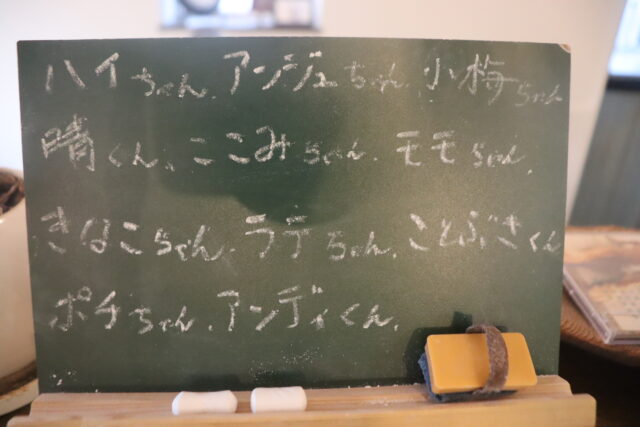 ハイちゃん.アンジュちゃん.小梅ちゃん
晴くん、ここみちゃん.モモちゃん.
きなこちゃん.ラテちゃん.ことぶきくん
ポチちゃん.アンディくん.